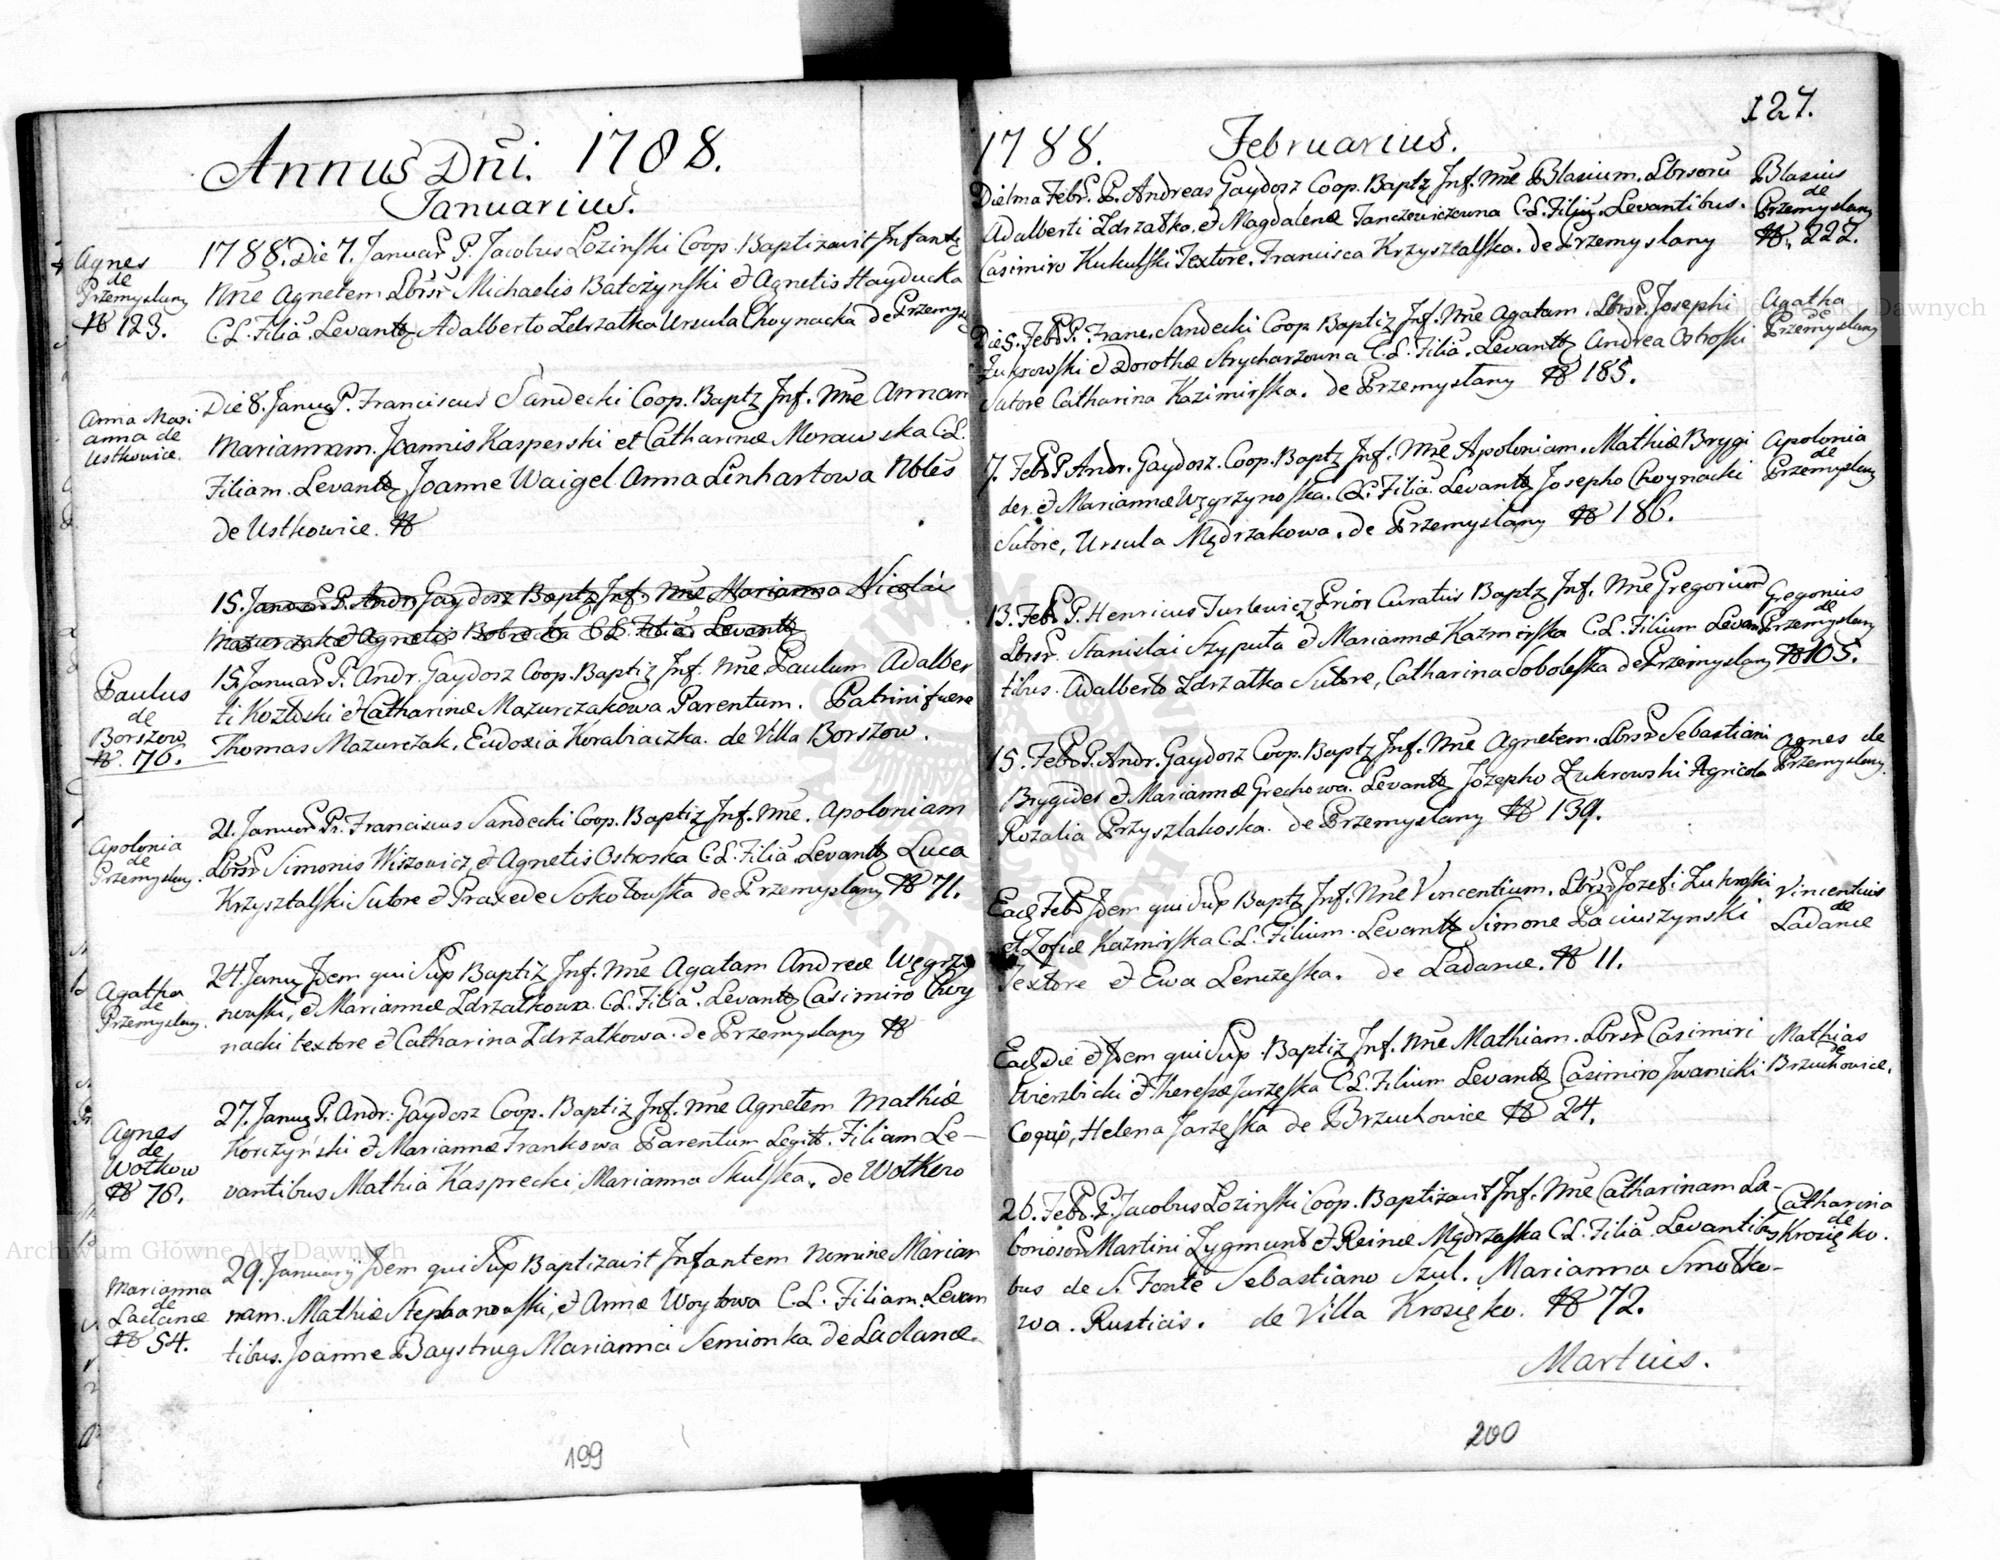 Annus Dñi. 1788.
Januarius.
Agnes
de
Przemyslany
№ 123.
1788. Die 7. Januar P. Jacobus Lozinski Coop. Baptizavit Infantē
Nme Agnetem Lbrsr Michaelis Batczynski & Agnetis Hayducka
C.L. Filiā. Levantb Adalberto Zdrzatka Ursula Choynacka de Przemysl
Anna Mari
anna de
Ustkowice.
Die 8. Janua P. Franciscus Sandecki Coop. Baptz Inf. Nme Annam
Mariannam. Joannis Kasperski et Catharinæ Morawska C.L.
Filiam. Levantb Joanne Waigel Anna Linhartowa Nbles
de Ustkowice. №
15. Januar P. Andr. Gaydosz Baptz Inf. Nme Marianna Nicolai
Mazurczak & Agnetis Bobrecka C.L. Filiā Levantb
Paulus
de
Borszow
№. 76.
15. Januar P. Andr. Gaydosz Coop. Baptiz Inf. Nme Paulum Adalber
ti Kozłoski & Catharinæ Mazurczakowa Parentum. Patrini fuere
Thomas Mazurczak, Eudoxia Korabiaczka. de Villa Borszow.
Apolonia
de
Przemyslany.
21. Januar Pr. Franciscus Sandecki Coop. Baptiz Inf. Nme. Apoloniam
Lbrsr Simonis Wiszowicz, & Agnetis Ostroska C.L. Filiā Levantb Luca
Krzysztalski Sutore & Praxede Sokołowska de Przemyslany № 71.
Agatha
de
Przemyslany.
24. Janua Idem qui Sup Baptiz Inf. Nme Agatam Andreæ Węgrzy
nowski, & Mariannæ Zdrzatkowa C.L. Filiā. Levantb Casimiro Choy
nacki textore & Catharina Zdrzatkowa. de Przemyslany №
Agnes
de
Wołkow
№ 78.
27. Janua P. Andr: Gaydosz Coop. Baptiz Inf. Nme Agnetem Mathiæ
Korczyński & Mariannæ Frankowa Parentum Legitt. Filiam Le-
vantibus Mathia Kasprecki, Marianna Skulska. de Wołkow
Marianna
de
Ladanæ
№ 54.
29. Januarij Idem qui Sup Baptizavit Infantem Nomine Marian
nam. Mathiæ Stephanowski, & Annæ Woytowa C.L. Filiam. Levan
tibus. Joanne Baystrug Marianna Semionka de Ladanæ.
199
127.
1788. Februarius.
Die 1ma Febr. P. Andreas Gaydosz Coop. Baptz Inf. Nme Blasium. Lbrsorū
Adalberti Zdrzatka, & Magdalenæ Janczewiczowna C.L. Filiū. Levantibus.
Casimiro Kukulski Textore. Francisca Krzysztalska. de Przemyslany
Blasius
de
Przemyslany
№. 222.
Die 5. Feb P. Franc. Sandecki Coop Baptiz Inf. Nme Agatam. Lbrsr. Josephi
Zukrowski & Dorothæ Strycharzowna C.L. Filiā. Levantb Andrea Ostroski
Sutore Catharina Kazimirska. de Przemyslany № 185.
Agatha
de
Przemyslany
7. Feb P Andr. Gaydosz. Coop. Baptz Inf. Nme Apoloniam. Mathiæ Brygi
der. & Mariannæ Węgrzynoska. C.L. Filiā. Levantb Josepho Choynacki
Sutore, Ursula Mędrzakowa. de Przemyslany № 186.
Apolonia
de
Przemyslany
13. Feb P. Henricus Turlewicz Prior Curatus Baptiz Inf. Nme Gregorium
Lbrsr. Stanislai Szyputa & Mariannæ Kazmirska C.L. Filium Levan
tibus. Adalberto Zdrzatka Sutore, Catharina Soboleska de Przemyslany
Gregorius
de
Przemyslany
№ 105.
15. Feb P. Andr. Gaydosz Coop. Baptz Inf. Nme Agnetem. Lbrsr Sebastiani
Brygider & Mariannæ Grechowa. Levantb Jozepho Zukrowski Agricola
Rozalia Przyszlakoska. de Przemyslany № 139.
Agnes de
Przemyslany.
Eadē Feb Idem qui Sup Baptz Inf. Nme Vincentium. Lbrsr Jozefi Zukroski
et Zofiæ Kazmirska C.L. Filium. Levantb Simone Paciuszynski
Textore & Ewa Lenczeska. de Ladanæ. № 11.
Vincentius
de
Ladanæ
Eadē Die & Idem qui Sup. Baptiz Inf. Nme Mathiam. Lbrsr Casimiri
Wierzbicki & Theresæ Jarzęska C.L. Filium Levantb Casimiro Iwanicki
Coquo, Helena Jarzęska de Brzuchowice № 24.
Mathias
de
Brzuchowice.
26. Feb. P. Jacobus Lozinski Coop. Baptizavit Inf. Nme Catharinam La-
boriosor Martini Zygmunt & Reinæ Mędrzaska C.L. Filiā Levanti
bus de S. Fonte Sebastiano Szul. Marianna Smotko-
wa. Rusticis. de Villa Krosięko. № 72.
Catharina
de
Krosięko.
Martius.
200
Archiwum Główne Akt Dawnych